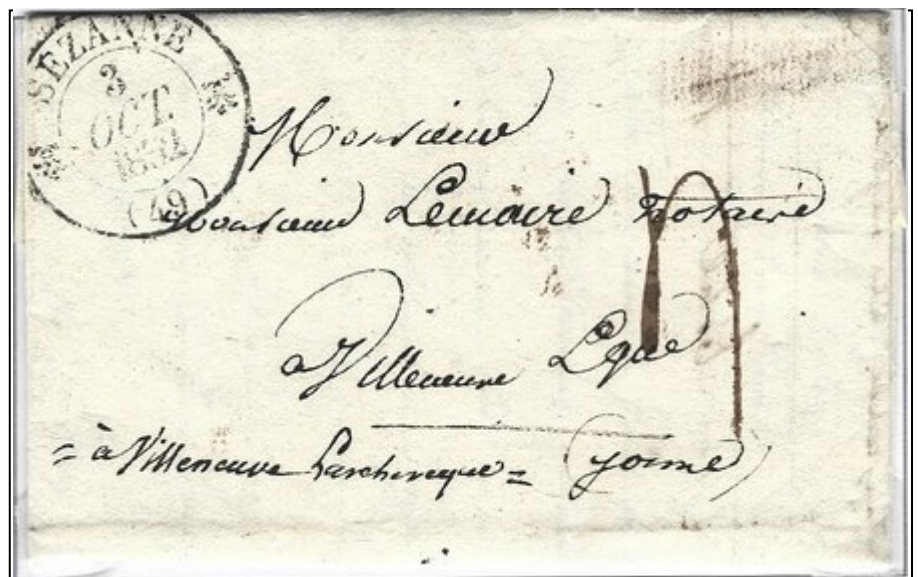 SEZANNE
3
OCT.
1832
(49)
Monsieur
Monsieur Lemaire Notaire
à Villeneuve Lque
= à Villeneuve Larcheveque = (yonne)